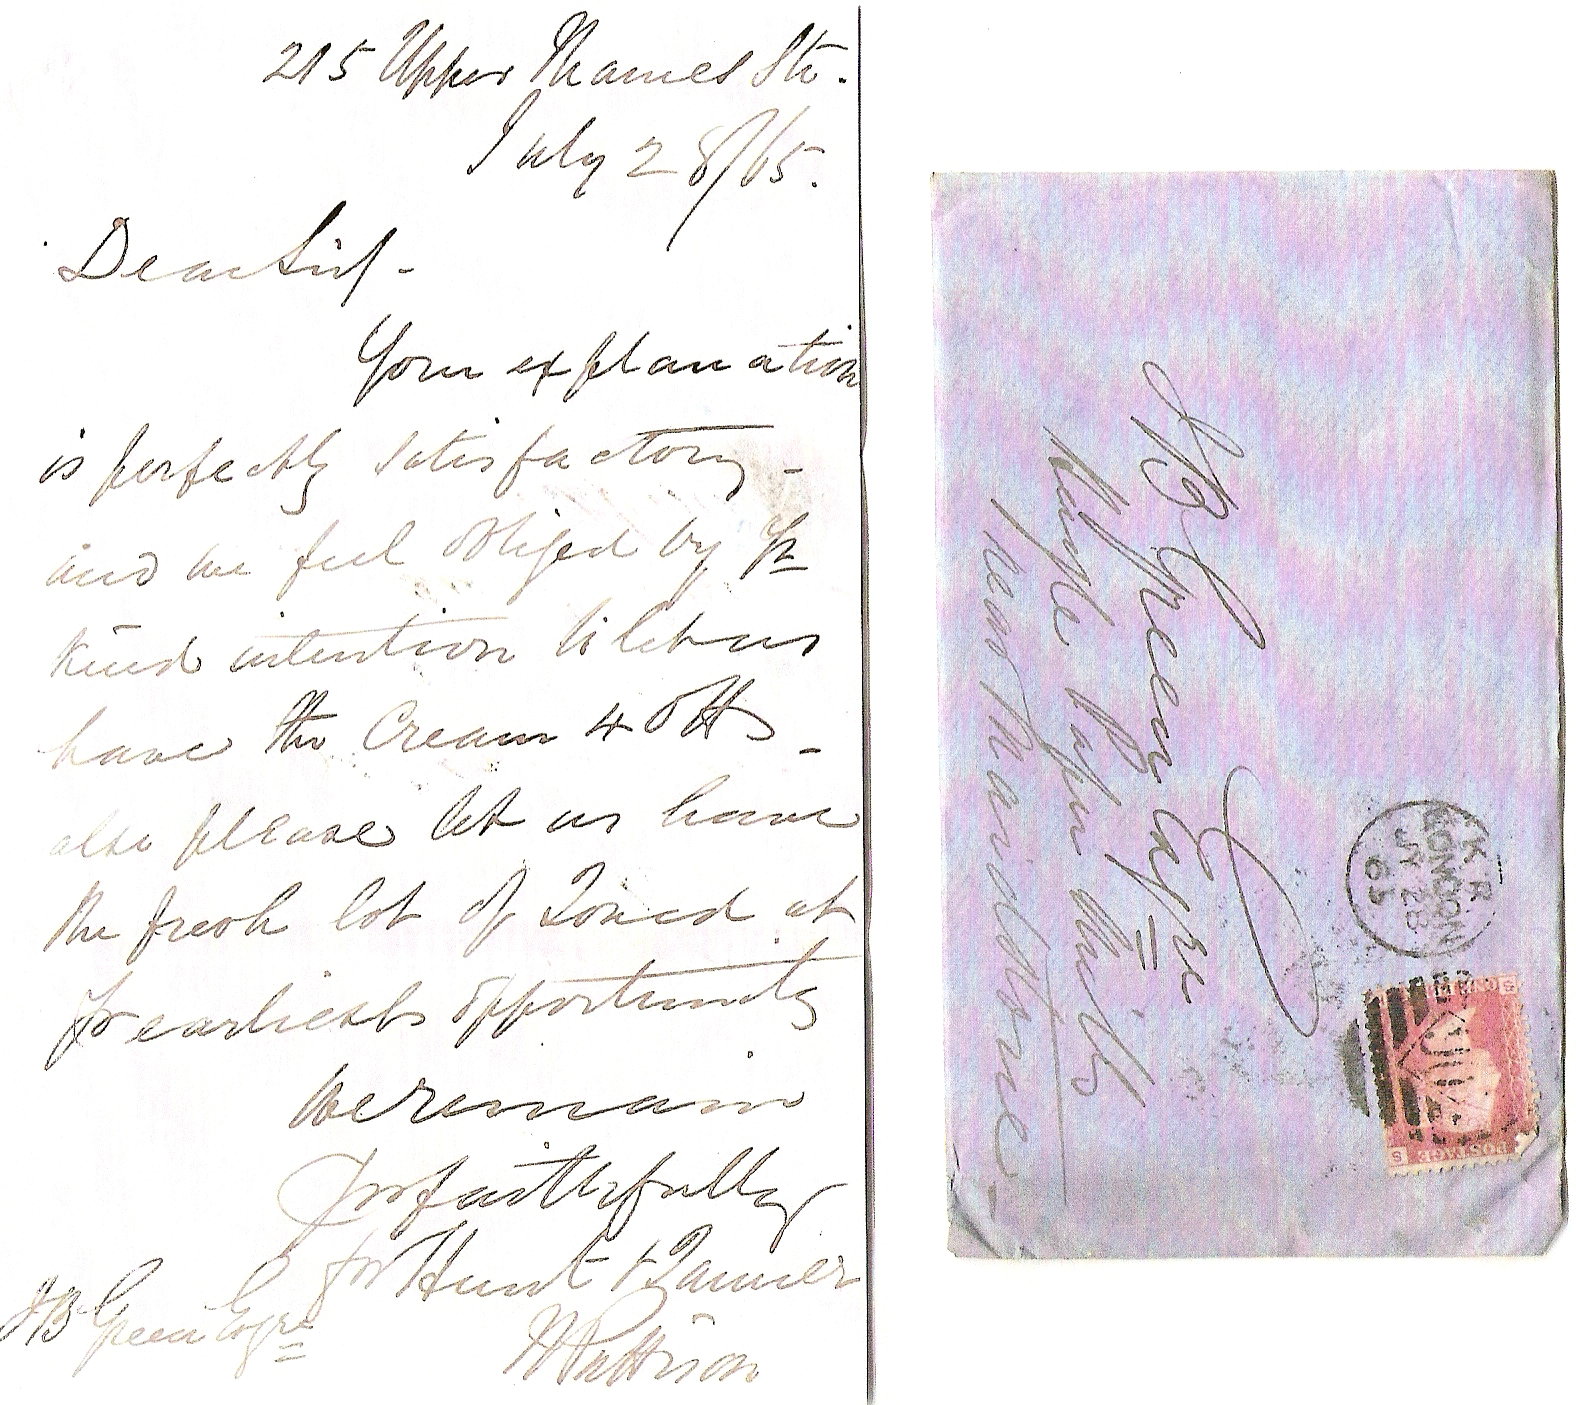 215 Upper Thames Str.
July 28/65.
Dear Sir,-
Your explanation
is perfectly satisfactory -
and we feel obliged by Yr
kind intention to let us
have the Cream 4
also please let us have
the fresh lot of Toned at
Yr earliest opportunity
We remain
Yrs faithfully
for Hunt & Tanner
Pattison
JB Green Esqre
JB Green Esqre
Hayle Paper Mills
near Maidstone
K R
LONDON
JY 28
65
POSTAGE
S
S